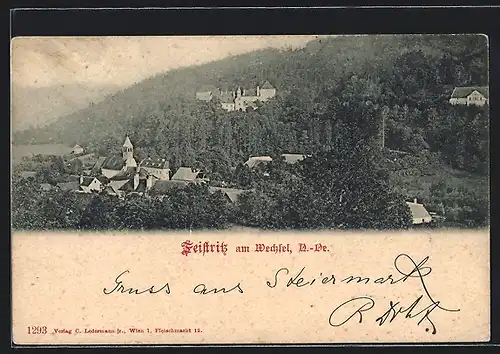 Feistritz am Wechsel, N.-Oe.
Gruss aus Steiermark
1293 Verlag C. Ledermann jr., Wien 1, Fleischmarkt 12.